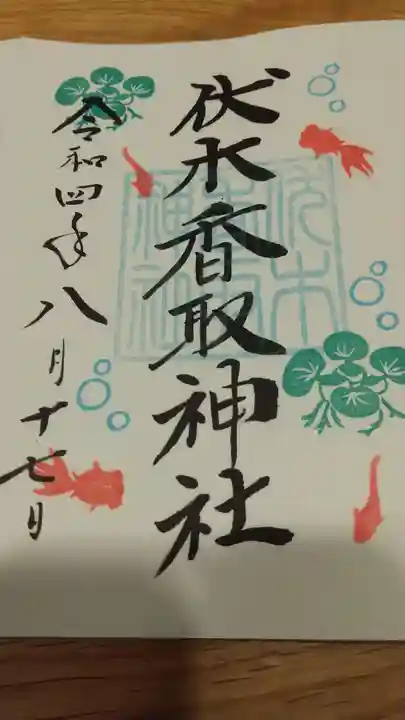 伏木香取神社
令和四年八月十七日